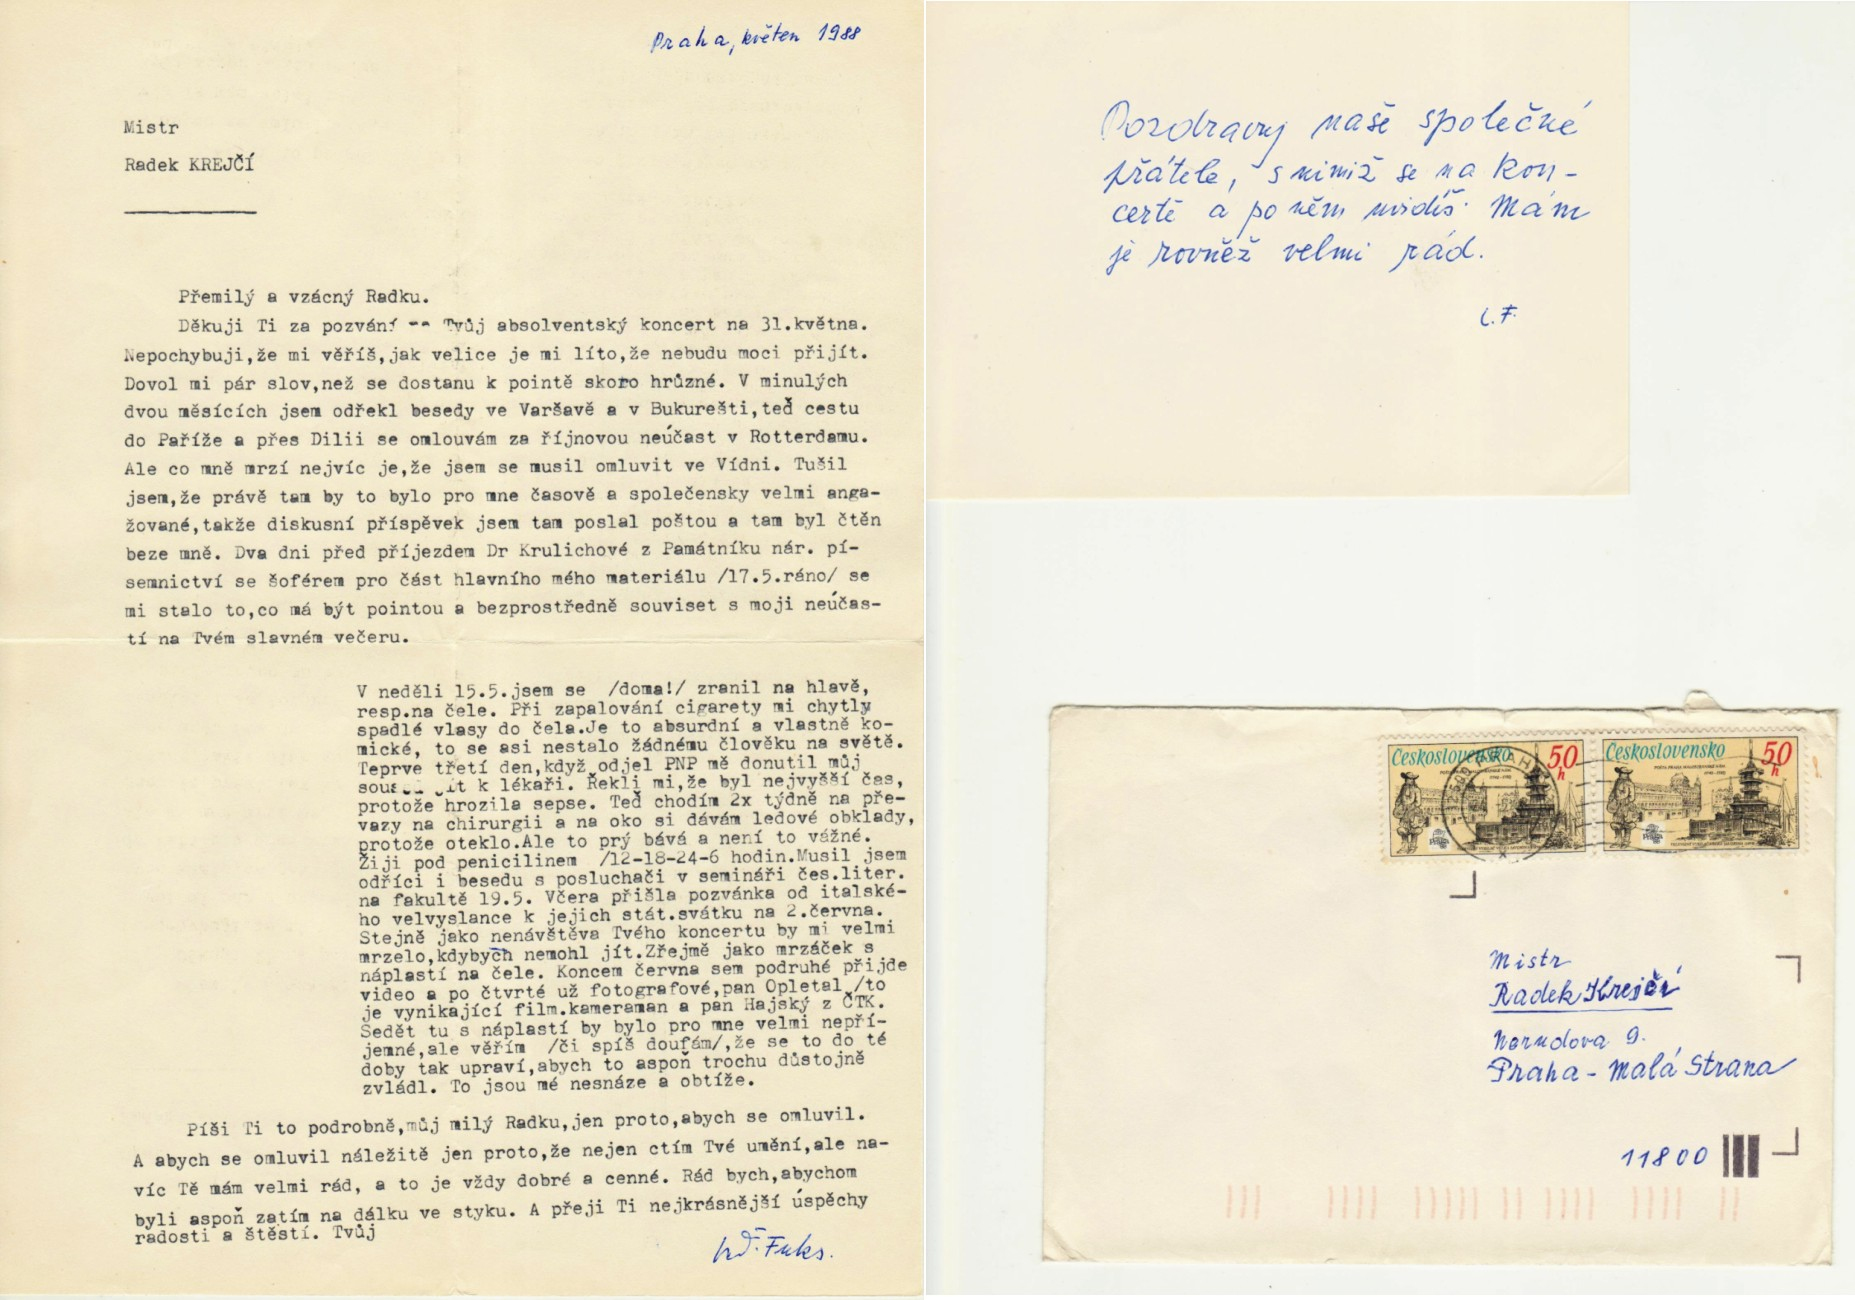 Praha, květen 1988
Mistr
Radek KREJČÍ
Přemilý a vzácný Radku.
Děkuji Ti za pozvání Tvůj absolventský koncert na 31.května.
Nepochybuji,že mi věříš,jak velice je mi líto,že nebudu moci přijít.
Dovol mi pár slov,než se dostanu k pointě skoro hrůzné. V minulých
dvou měsících jsem odřekl besedy ve Varšavě a v Bukurešti,teď cestu
do Paříže a přes Dilii se omlouvám za říjnovou neúčast v Rotterdamu.
Ale co mně mrzí nejvíc je,že jsem se musil omluvit ve Vídni. Tušil
jsem,že právě tam by to bylo pro mne časově a společensky velmi anga-
žované,takže diskusní příspěvek jsem tam poslal poštou a tam byl čtěn
beze mně. Dva dni před příjezdem Dr Krulichové z Památníku nár. pí-
semnictví se šoférem pro část hlavního mého materiálu /17.5.ráno/ se
mi stalo to,co má být pointou a bezprostředně souviset s moji neúčas-
tí na Tvém slavném večeru.
V neděli 15.5.jsem se /doma!/ zranil na hlavě,
resp.na čele. Při zapalování cigarety mi chytly
spadlé vlasy do čela.Je to absurdní a vlastně ko-
mické, to se asi nestalo žádnému člověku na světě.
Teprve třetí den,když odjel PNP mě donutil můj
k lékaři. Řekli mi,že byl nejvyšší čas,
protože hrozila sepse. Teď chodím 2x týdně na pře-
vazy na chirurgii a na oko si dávám ledové obklady,
protože oteklo.Ale to prý bává a není to vážné.
Žiji pod penicilinem /12-18-24-6 hodin.Musil jsem
odříci i besedu s posluchači v semináři čes.liter.
na fakultě 19.5. Včera přišla pozvánka od italské-
ho velvyslance k jejich stát.svátku na 2.června.
Stejně jako nenávštěva Tvého koncertu by mi velmi
mrzelo,kdybych nemohl jít.Zřejmě jako mrzáček s
náplastí na čele. Koncem června sem podruhé přijde
video a po čtvrté už fotografové,pan Opletal /to
je vynikající film.kameraman a pan Hajský z ČTK.
Sedět tu s náplastí by bylo pro mne velmi nepří-
jemné,ale věřím /či spíš doufám/,že se to do té
doby tak upraví,abych to aspoň trochu důstojně
zvládl. To jsou mé nesnáze a obtíže.
Píši Ti to podrobně,můj milý Radku,jen proto,abych se omluvil.
A abych se omluvil náležitě jen proto,že nejen ctím Tvé umění,ale na-
víc Tě mám velmi rád, a to je vždy dobré a cenné. Rád bych,abychom
byli aspoň zatím na dálku ve styku. A přeji Ti nejkrásnější úspěchy
radosti a štěstí. Tvůj
Lď. Fuks.
Pozdravy naše společné
přátele, s nimiž se na kon-
certě a po něm uvidíš. Mám
je rovněž velmi rád.
L.F.
Československo 50 h
Československo 50 h
Mistr
Radek Krejčí
Nerudova 9.
Praha - Malá Strana
11800